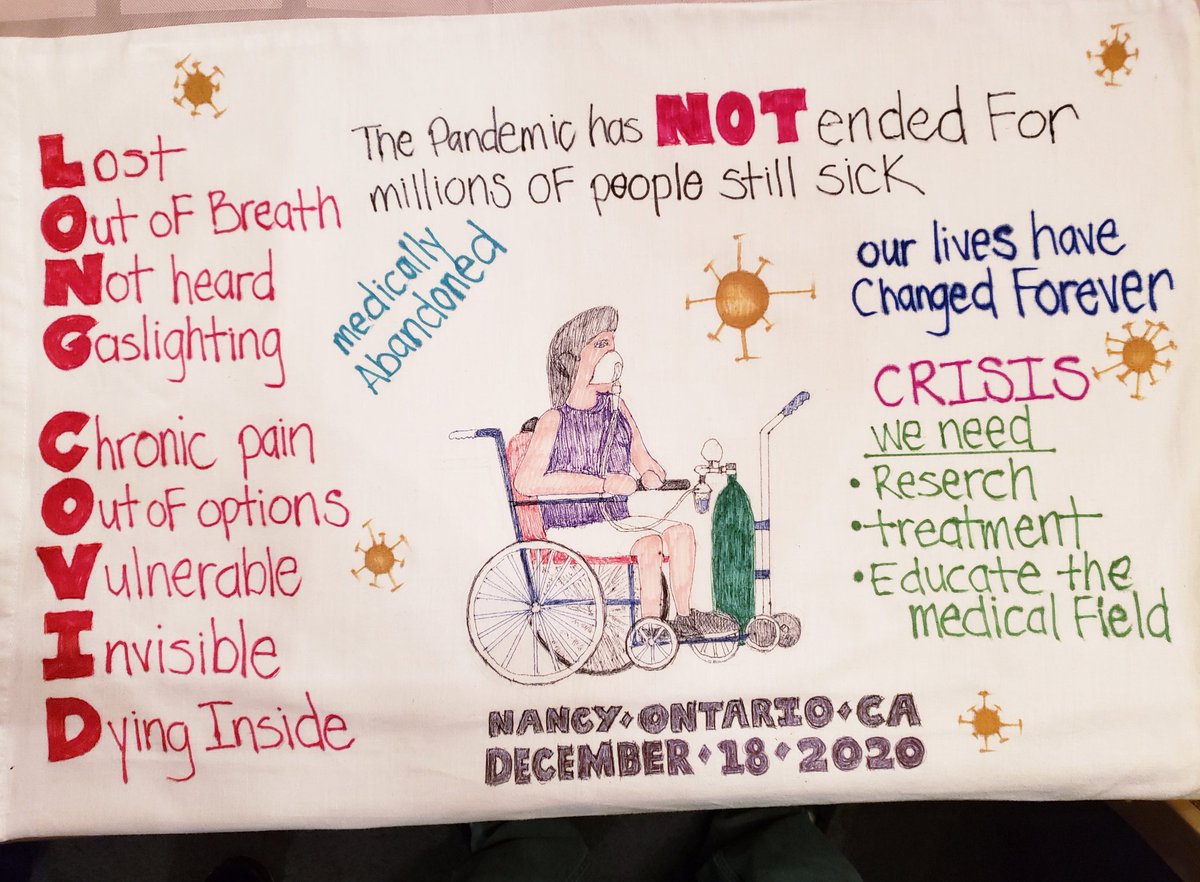 The Pandemic has NOT ended For
millions of people still sick
Lost
Out of Breath
Not heard
Gaslighting
Chronic pain
Out of options
Vulnerable
Invisible
Dying Inside
medically
Abandoned
our lives have
Changed Forever
CRISIS
we need
• Reserch
• treatment
• Educate the
medical Field
NANCY • ONTARIO • CA
DECEMBER • 18 • 2020